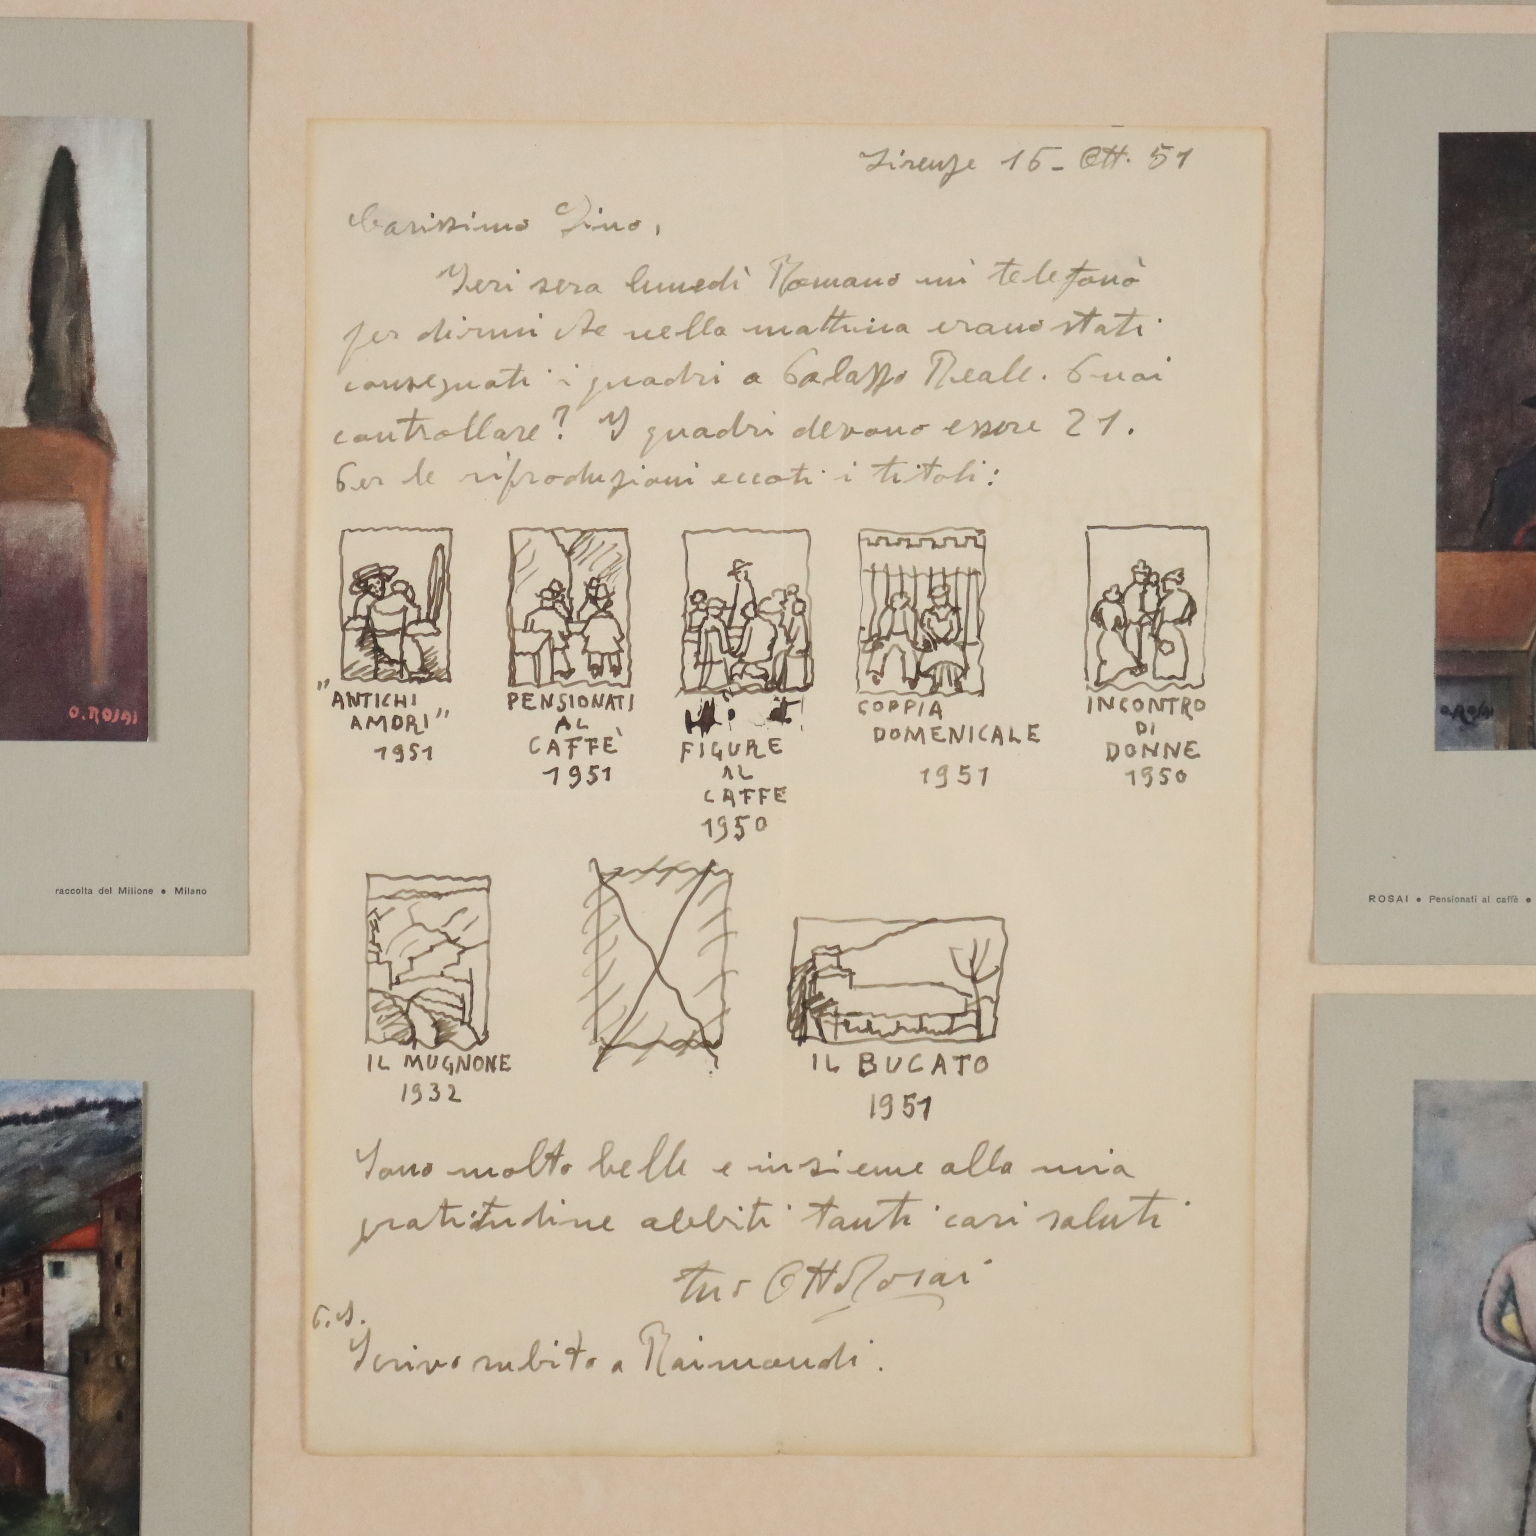 Firenze 16 - Ott. 51
Carissimo Gino,
Ieri sera lunedì Romano mi telefonò
per dirmi che nella mattina erano stati
consegnati i quadri a Palazzo Reale. Puoi
controllare? I quadri devono essere 21.
Per le riproduzioni eccoti i titoli:
"ANTICHI
AMORI"
1951
PENSIONATI
AL
CAFFÈ
1951
FIGURE
AL
CAFFE
1950
COPPIA
DOMENICALE
1951
INCONTRO
DI
DONNE
1950
IL MUGNONE
1932
IL BUCATO
1951
Sono molto belle e insieme alla mia
gratitudine abbiti tanti cari saluti
tuo Otto Rosai
P.S.
Scrivo subito a Raimondi.
O. ROSAI
raccolta del Milione • Milano
O. ROSAI
ROSAI • Pensionati al caffè •